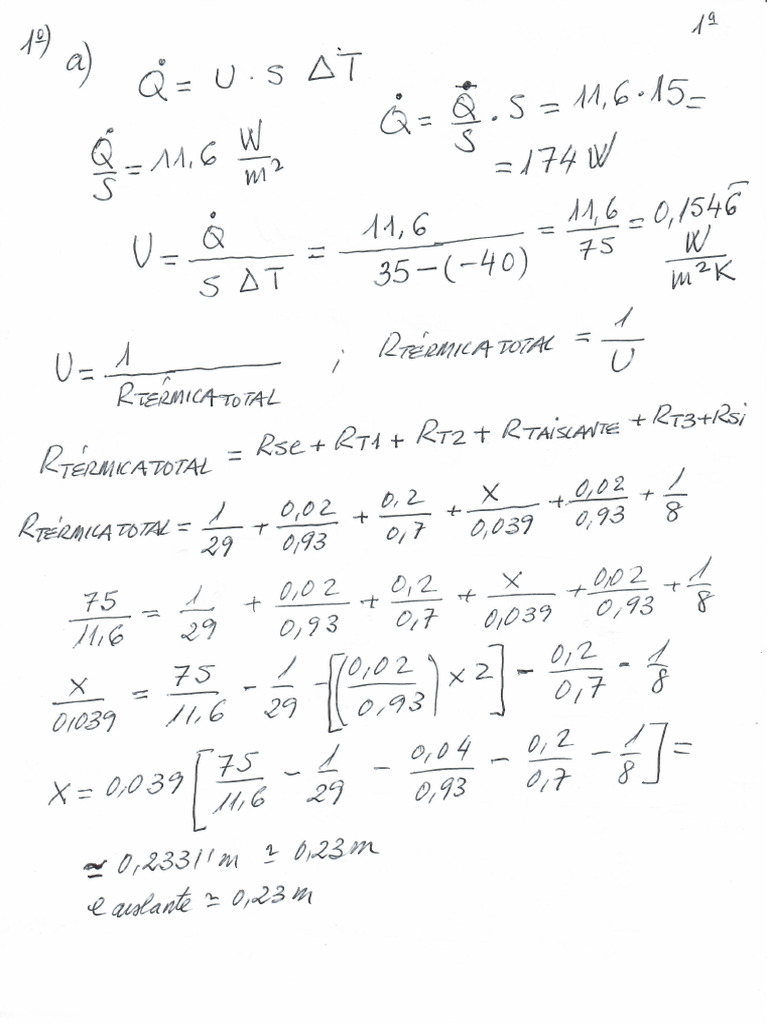 1º) a) Q̇ = U · S ΔT
1ª
Q̇/S = 11,6 W/m²
Q̇ = Q̇/S · S = 11,6 · 15 =
= 174 W
U = Q̇/(S ΔT) = 11,6/(35-(-40)) = 11,6/75 = 0,1546̂ W/m²K
U = 1/RTÉRMICA TOTAL ; RTÉRMICA TOTAL = 1/U
RTÉRMICA TOTAL = Rse + RT1 + RT2 + RTAISLANTE + RT3 + Rsi
RTÉRMICA TOTAL = 1/29 + 0,02/0,93 + 0,2/0,7 + X/0,039 + 0,02/0,93 + 1/8
75/11,6 = 1/29 + 0,02/0,93 + 0,2/0,7 + X/0,039 + 0,02/0,93 + 1/8
X/0,039 = 75/11,6 - 1/29 - [(0,02/0,93) x 2] - 0,2/0,7 - 1/8
X = 0,039 [75/11,6 - 1/29 - 0,04/0,93 - 0,2/0,7 - 1/8] =
≃ 0,23311' m ≃ 0,23 m
e aislante ≃ 0,23 m